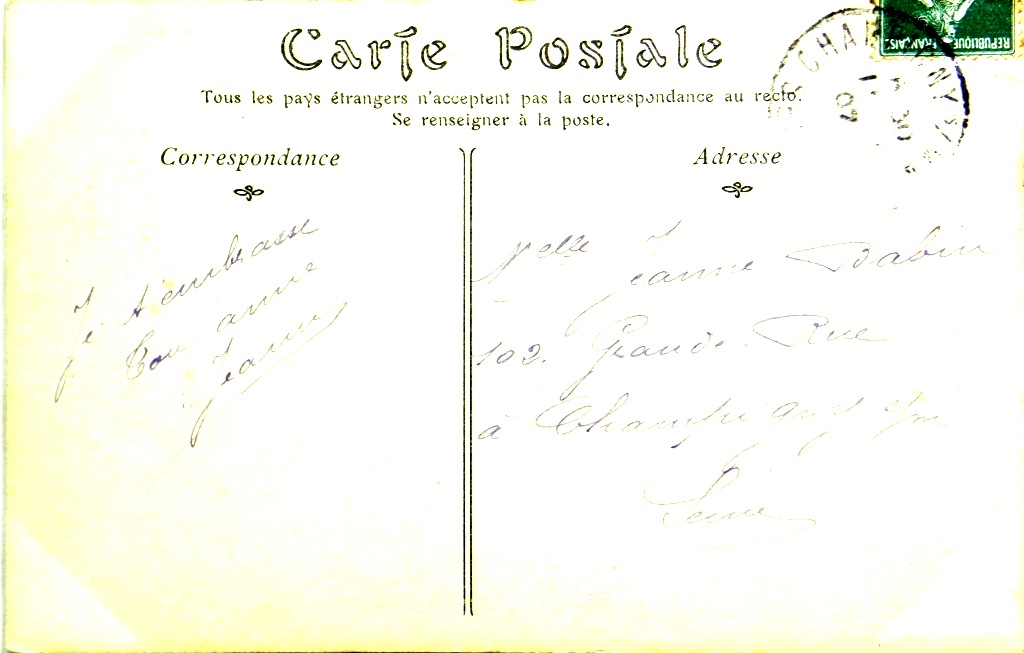 Carte Postale
Tous les pays étrangers n'acceptent pas la correspondance au recto.
Se renseigner à la poste.
Correspondance
Adresse
RÉPUBLIQUE FRANÇAISE
CHAMPIGNY S/
30
07
Je t'embrasse
Ton amie
Jeanne
Melle Jeanne Babin
102. Grande Rue
à Champigny
Seine